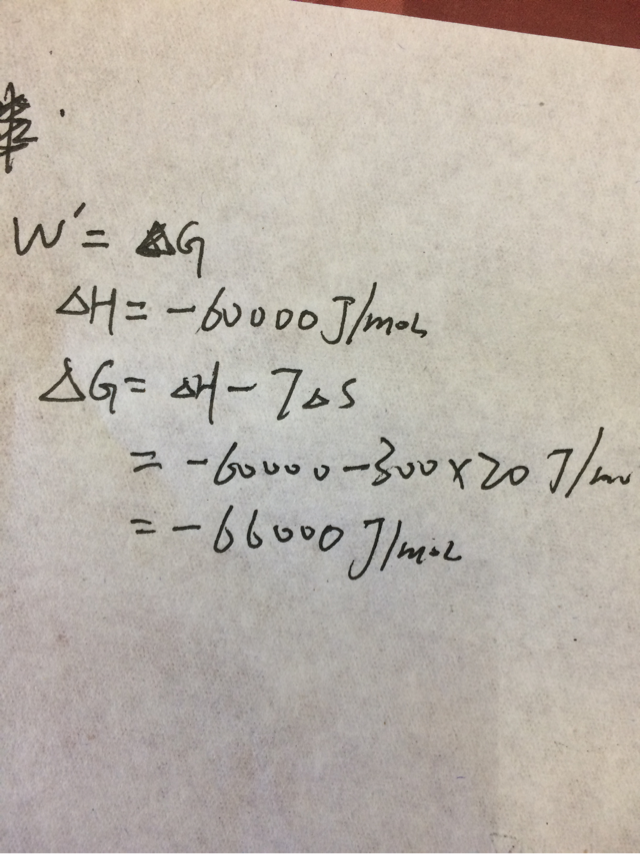 W′ = ΔG
ΔH = -60000 J/mol
ΔG = ΔH - TΔS
= -60000 - 300 × 20 J/mo
= -66000 J/mol